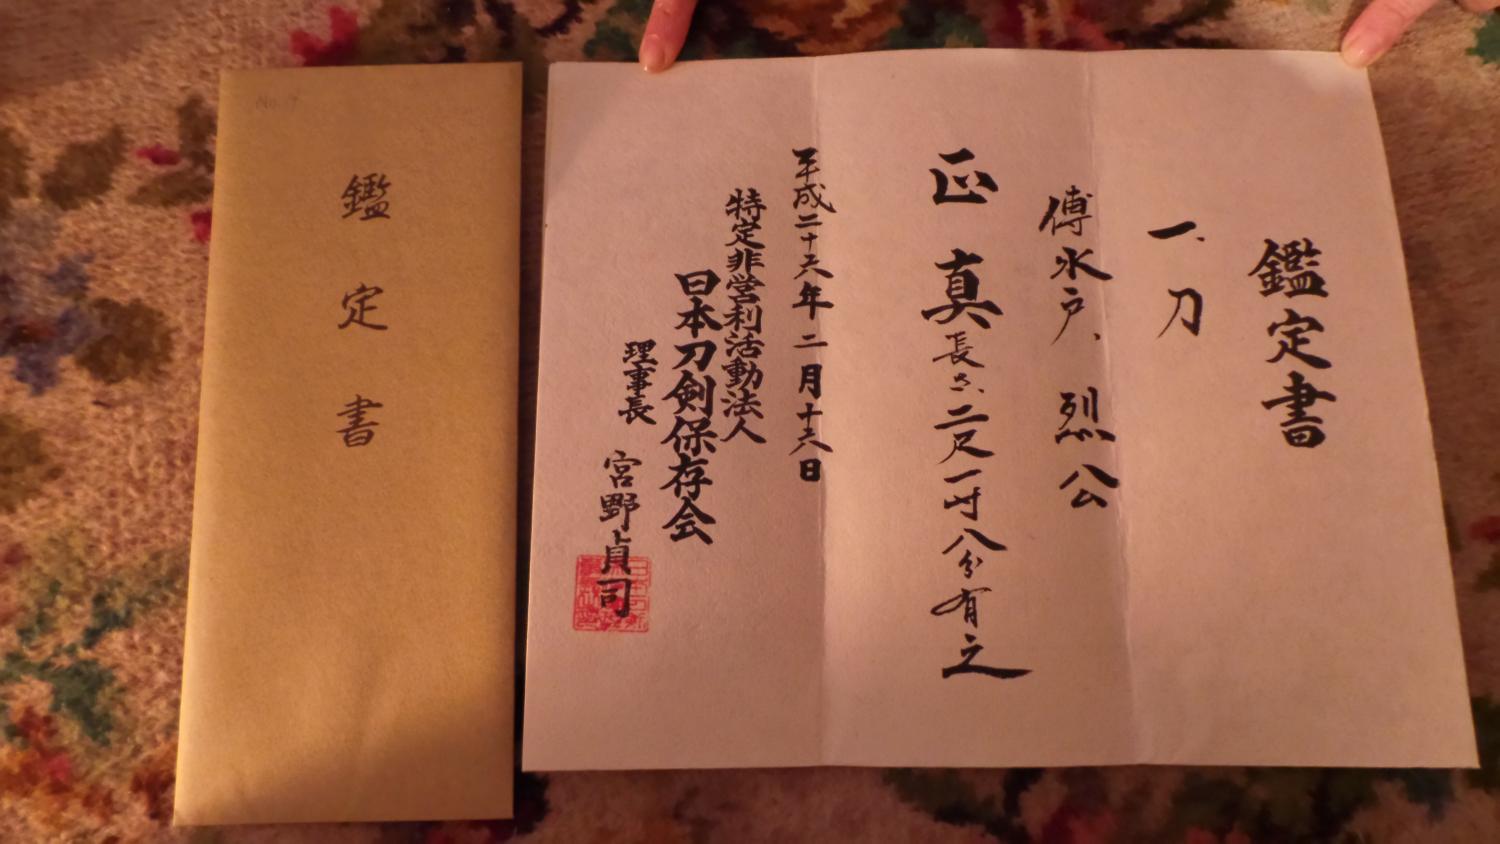 鑑定書
鑑定書
一、刀
傳水戸、烈公
正真
長さ、二尺一寸八分有之
平成二十六年二月十六日
特定非営利活動法人
日本刀剣保存会
理事長
宮野貞司